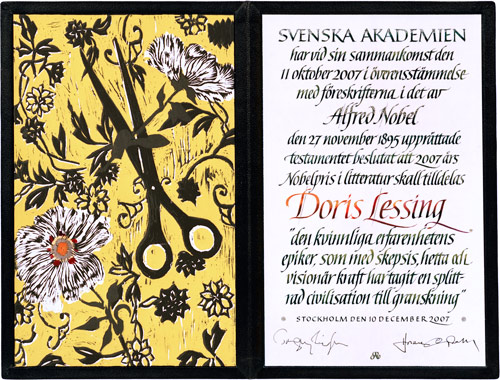 SVENSKA AKADEMIEN
har vid sin sammankomst den
11 oktober 2007 i överensstämmelse
med föreskrifterna i det av
Alfred Nobel
den 27 november 1895 upprättade
testamentet beslutat att 2007 års
Nobelpris i litteratur skall tilldelas
Doris Lessing
"den kvinnliga erfarenhetens
epiker, som med skepsis, hetta och
visionär kraft har tagit en splitt-
rad civilisation till granskning"
STOCKHOLM DEN 10 DECEMBER 2007